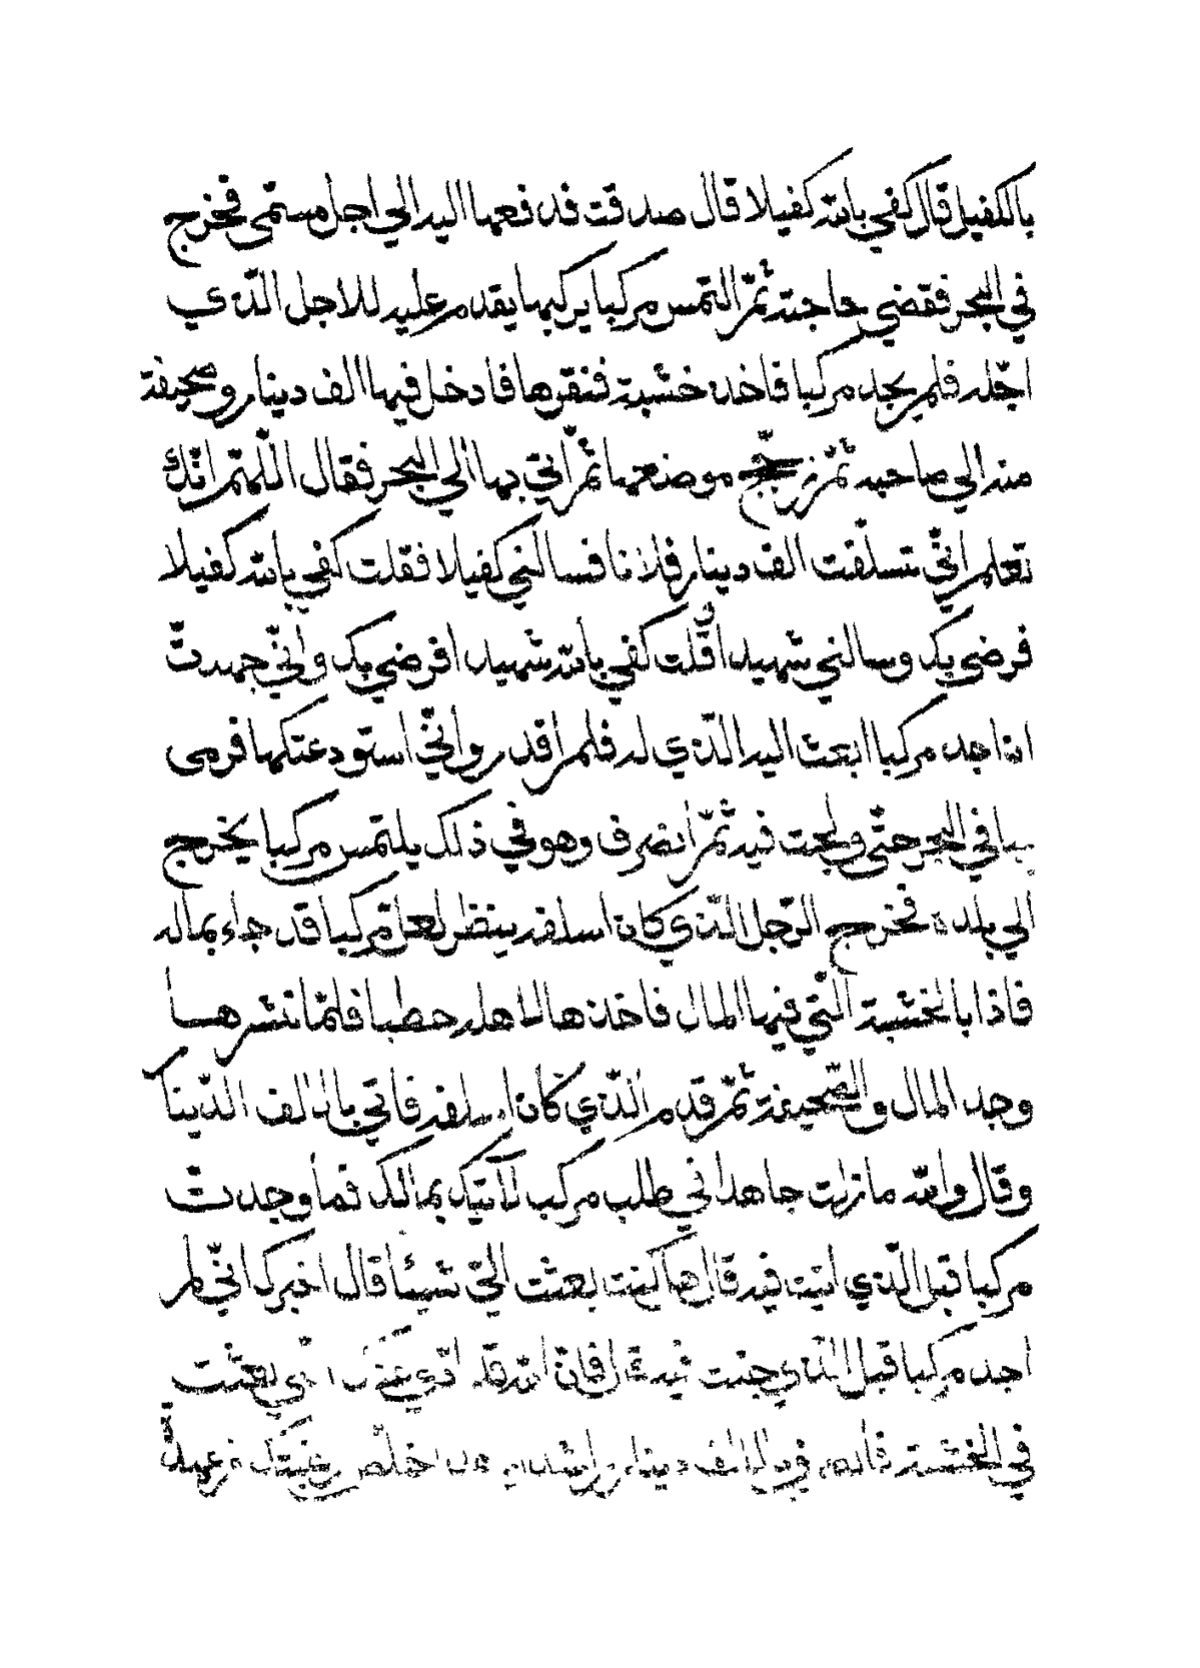 بالكفيل قال كفي بالله كفيلا قال صدقت فدفعها اليه الي اجل مسمّى فخرج
في البحر فقضي حاجته ثمّ التمس مركبا يركبها يقدم عليه للاجل الّذي
اجّله فلم يجد مركبا فاخذ خشبة فنقرها فادخل فيها الف دينار وصحيفة
منه الي صاحبه ثمّ زجّج موضعها ثمّ أتي بها الي البحر فقال اللّهمّ انّك
تعلم انّي تسلّفت الف دينار فلانا فسالني كفيلا فقلت كفي بالله كفيلا
فرضي بك وسالني شهيدا فقلت كفي بالله شهيدا فرضي بك وانّي جهدتّ
ان اجد مركبا ابعث اليه الّذي له فلم أقدر وانّي استودعتكها فرمى
بها في البحر حتّى ولجت فيه ثمّ انصرف وهو في ذلك يلتمس مركبا يخرج
الي بلده فخرج الرّجل الّذي كان اسلفه ينظر لعلّ مركبا قد جاء بماله
فاذا بالخشبة الّتي فيها المال فاخذها لاهله حطبا فلمّا نشرها
وجد المال والصّحيفة ثمّ قدم الّذي كان اسلفه فاتي بالالف الدّينا
وقال والله مازلت جاهدا في طلب مركب لآتيك بمالك فما وجدتّ
مركبا قبل الّذي اتيت فيه قال هل كنت بعثت الىّ شيئا قال اخبرك انّي لم
اجد مركبا قبل الّذي جئت فيه قال فانّ الله قد ادّي عنك الّذي بعثت
في الخشبة فانصرف بالالف دينار راشدا